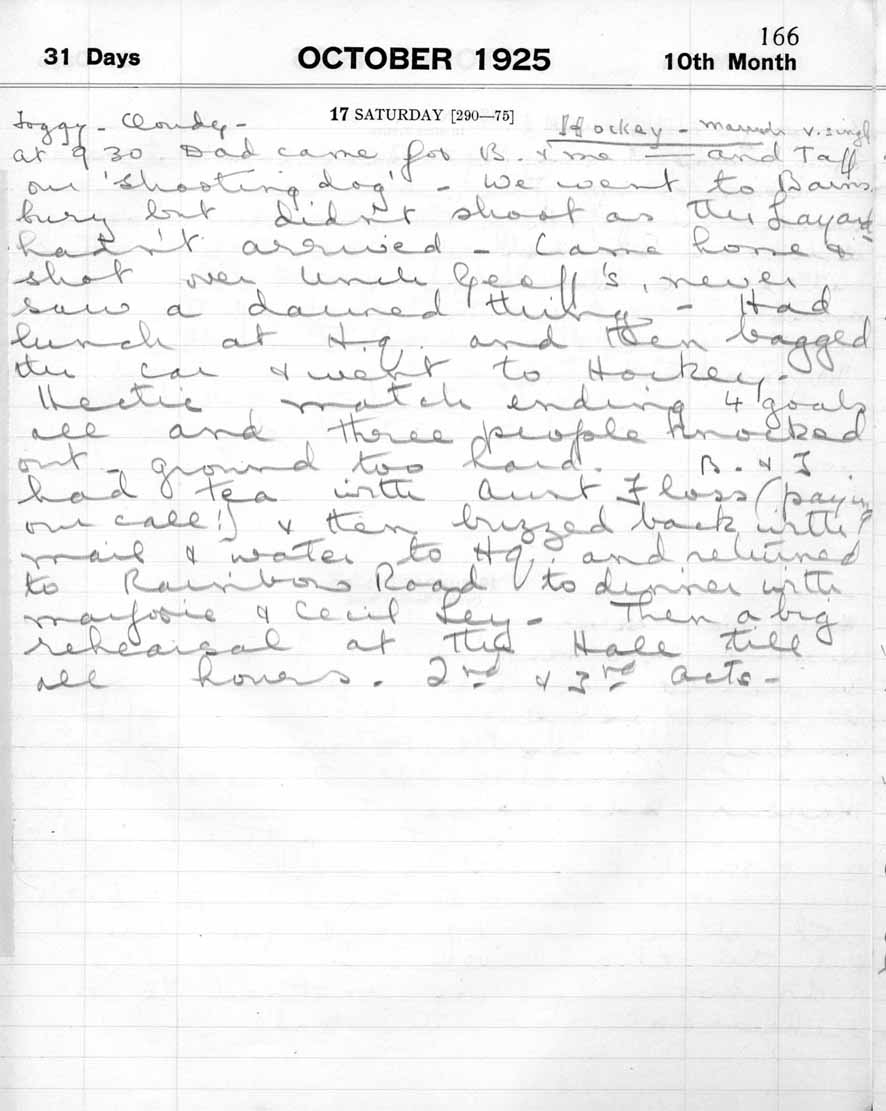 166
31 Days OCTOBER 1925 10th Month
17 SATURDAY [290—75]
Foggy - Cloudy - Hockey - v. singl
at 9.30 Dad came for B. & me — and Taff
our 'shooting dog' - We went to Bains
bury but didn't shoot as the Layard
hadn't arrived - Came home &
shot over Uncle Geoff's, never
saw a darned thing - Had
lunch at H.Q. and then bagged
the car & went to Hockey -
Hectic match ending 4 goals
all and three people knocked
out - ground too hard. B. & I
had tea with Aunt Floss (paying
our call!) & then buzzed back with
mail & water to HQ. and returned
to Rainbow Road to dinner with
Marjorie & Cecil Ley - Then a big
rehearsal at the Hall till
all hours. 2nd & 3rd acts -